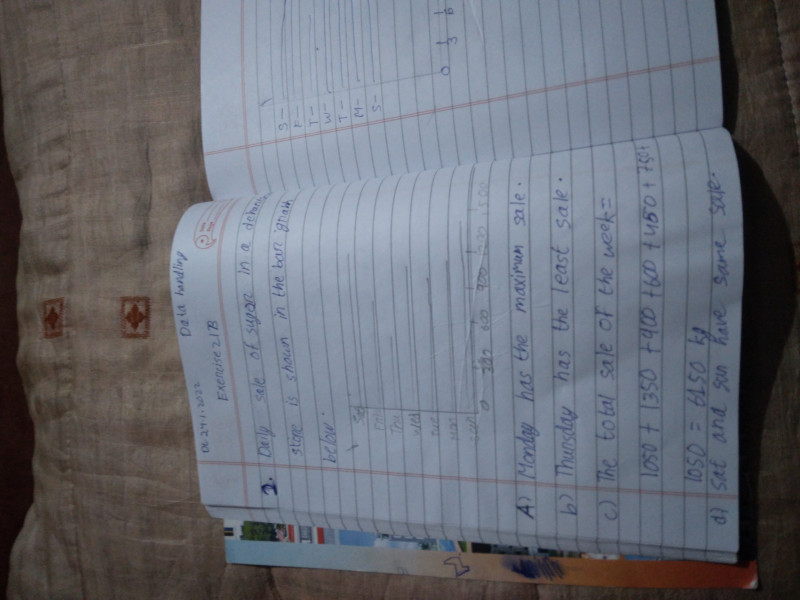 Dt 24.1.2022
Data handling
Exercise 21B
2. Daily sale of sugar in a
store is shown in the bar graph
below.
Sat
Fri
Thu
Wed
Tue
Mon
Sun
0 300 600 900 1200 1500
A) Monday has the maximum sale.
b) Thursday has the least sale.
c) The total sale of the week =
1050 + 1350 + 900 + 600 + 450 + 750 +
1050 = 6150 kg
d) sat and sun have same sale.
S-
F-
T-
W-
T-
M-
S-
0 3 6